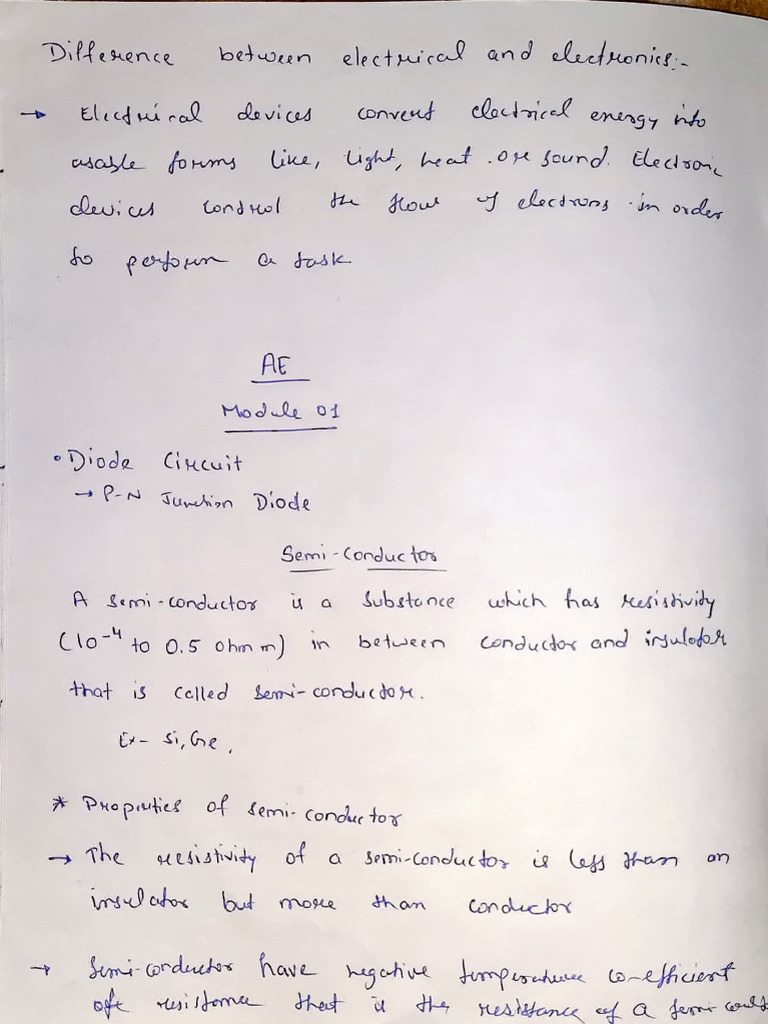 Difference between electrical and electronics:-
→ Electrical devices convert electrical energy into
usable forms like, light, heat . or sound. Electronic
devices control the flow of electrons in order
to perform a task
AE
Module 01
• Diode Circuit
→ P-N Junction Diode
Semi-Conductor
A semi-conductor is a substance which has resistivity
(10⁻⁴ to 0.5 ohm m) in between conductor and insulator
that is called semi-conductor.
Ex- Si, Ge,
* Properties of semi-conductor
→ The resistivity of a semi-conductor is less than an
insulator but more than conductor
→ Semi-conductor have negative temperature co-efficient
of resistance that is the resistance of a semi